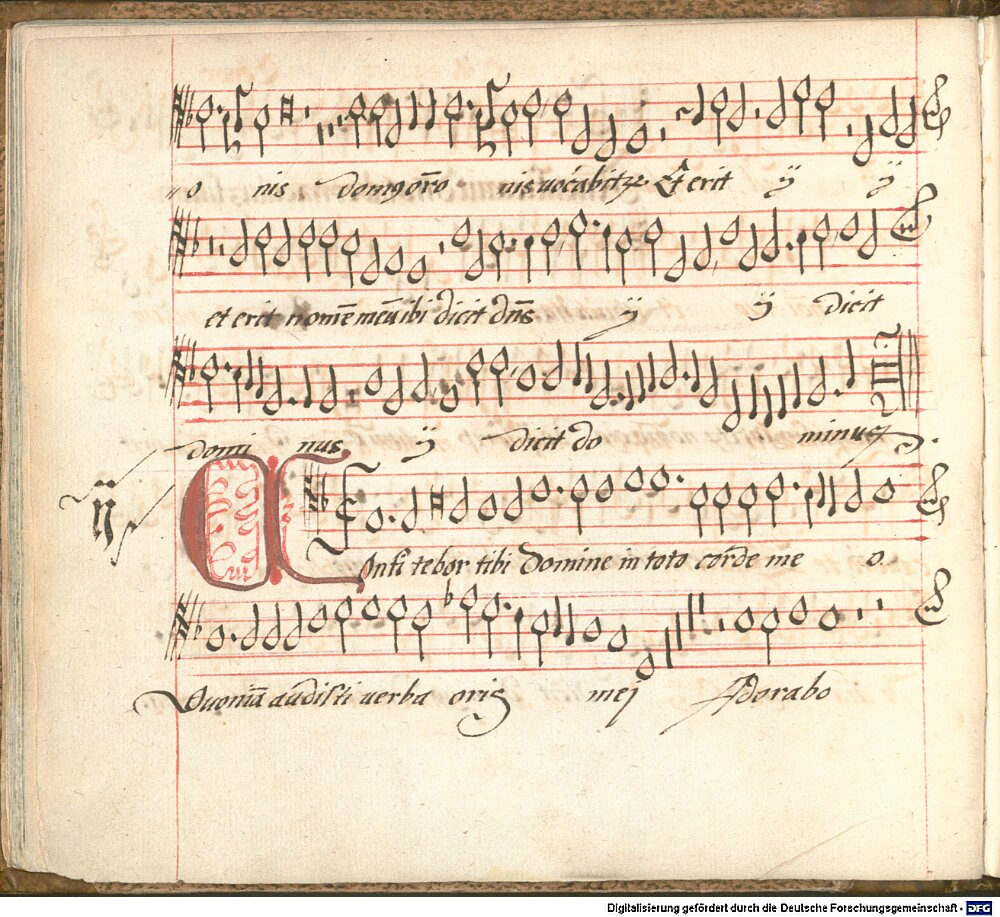 o nis domꝰ orō nis uocabit Et erit ÿ ÿ
et erit nomē meū ibi dicit dn̄s ÿ ÿ dicit
domi nus ÿ dicit do minus
ij
Confi tebor tibi Domine in toto corde me o.
Quoniā audisti uerba oris mej Adorabo
Digitalisierung gefördert durch die Deutsche Forschungsgemeinschaft - DFG